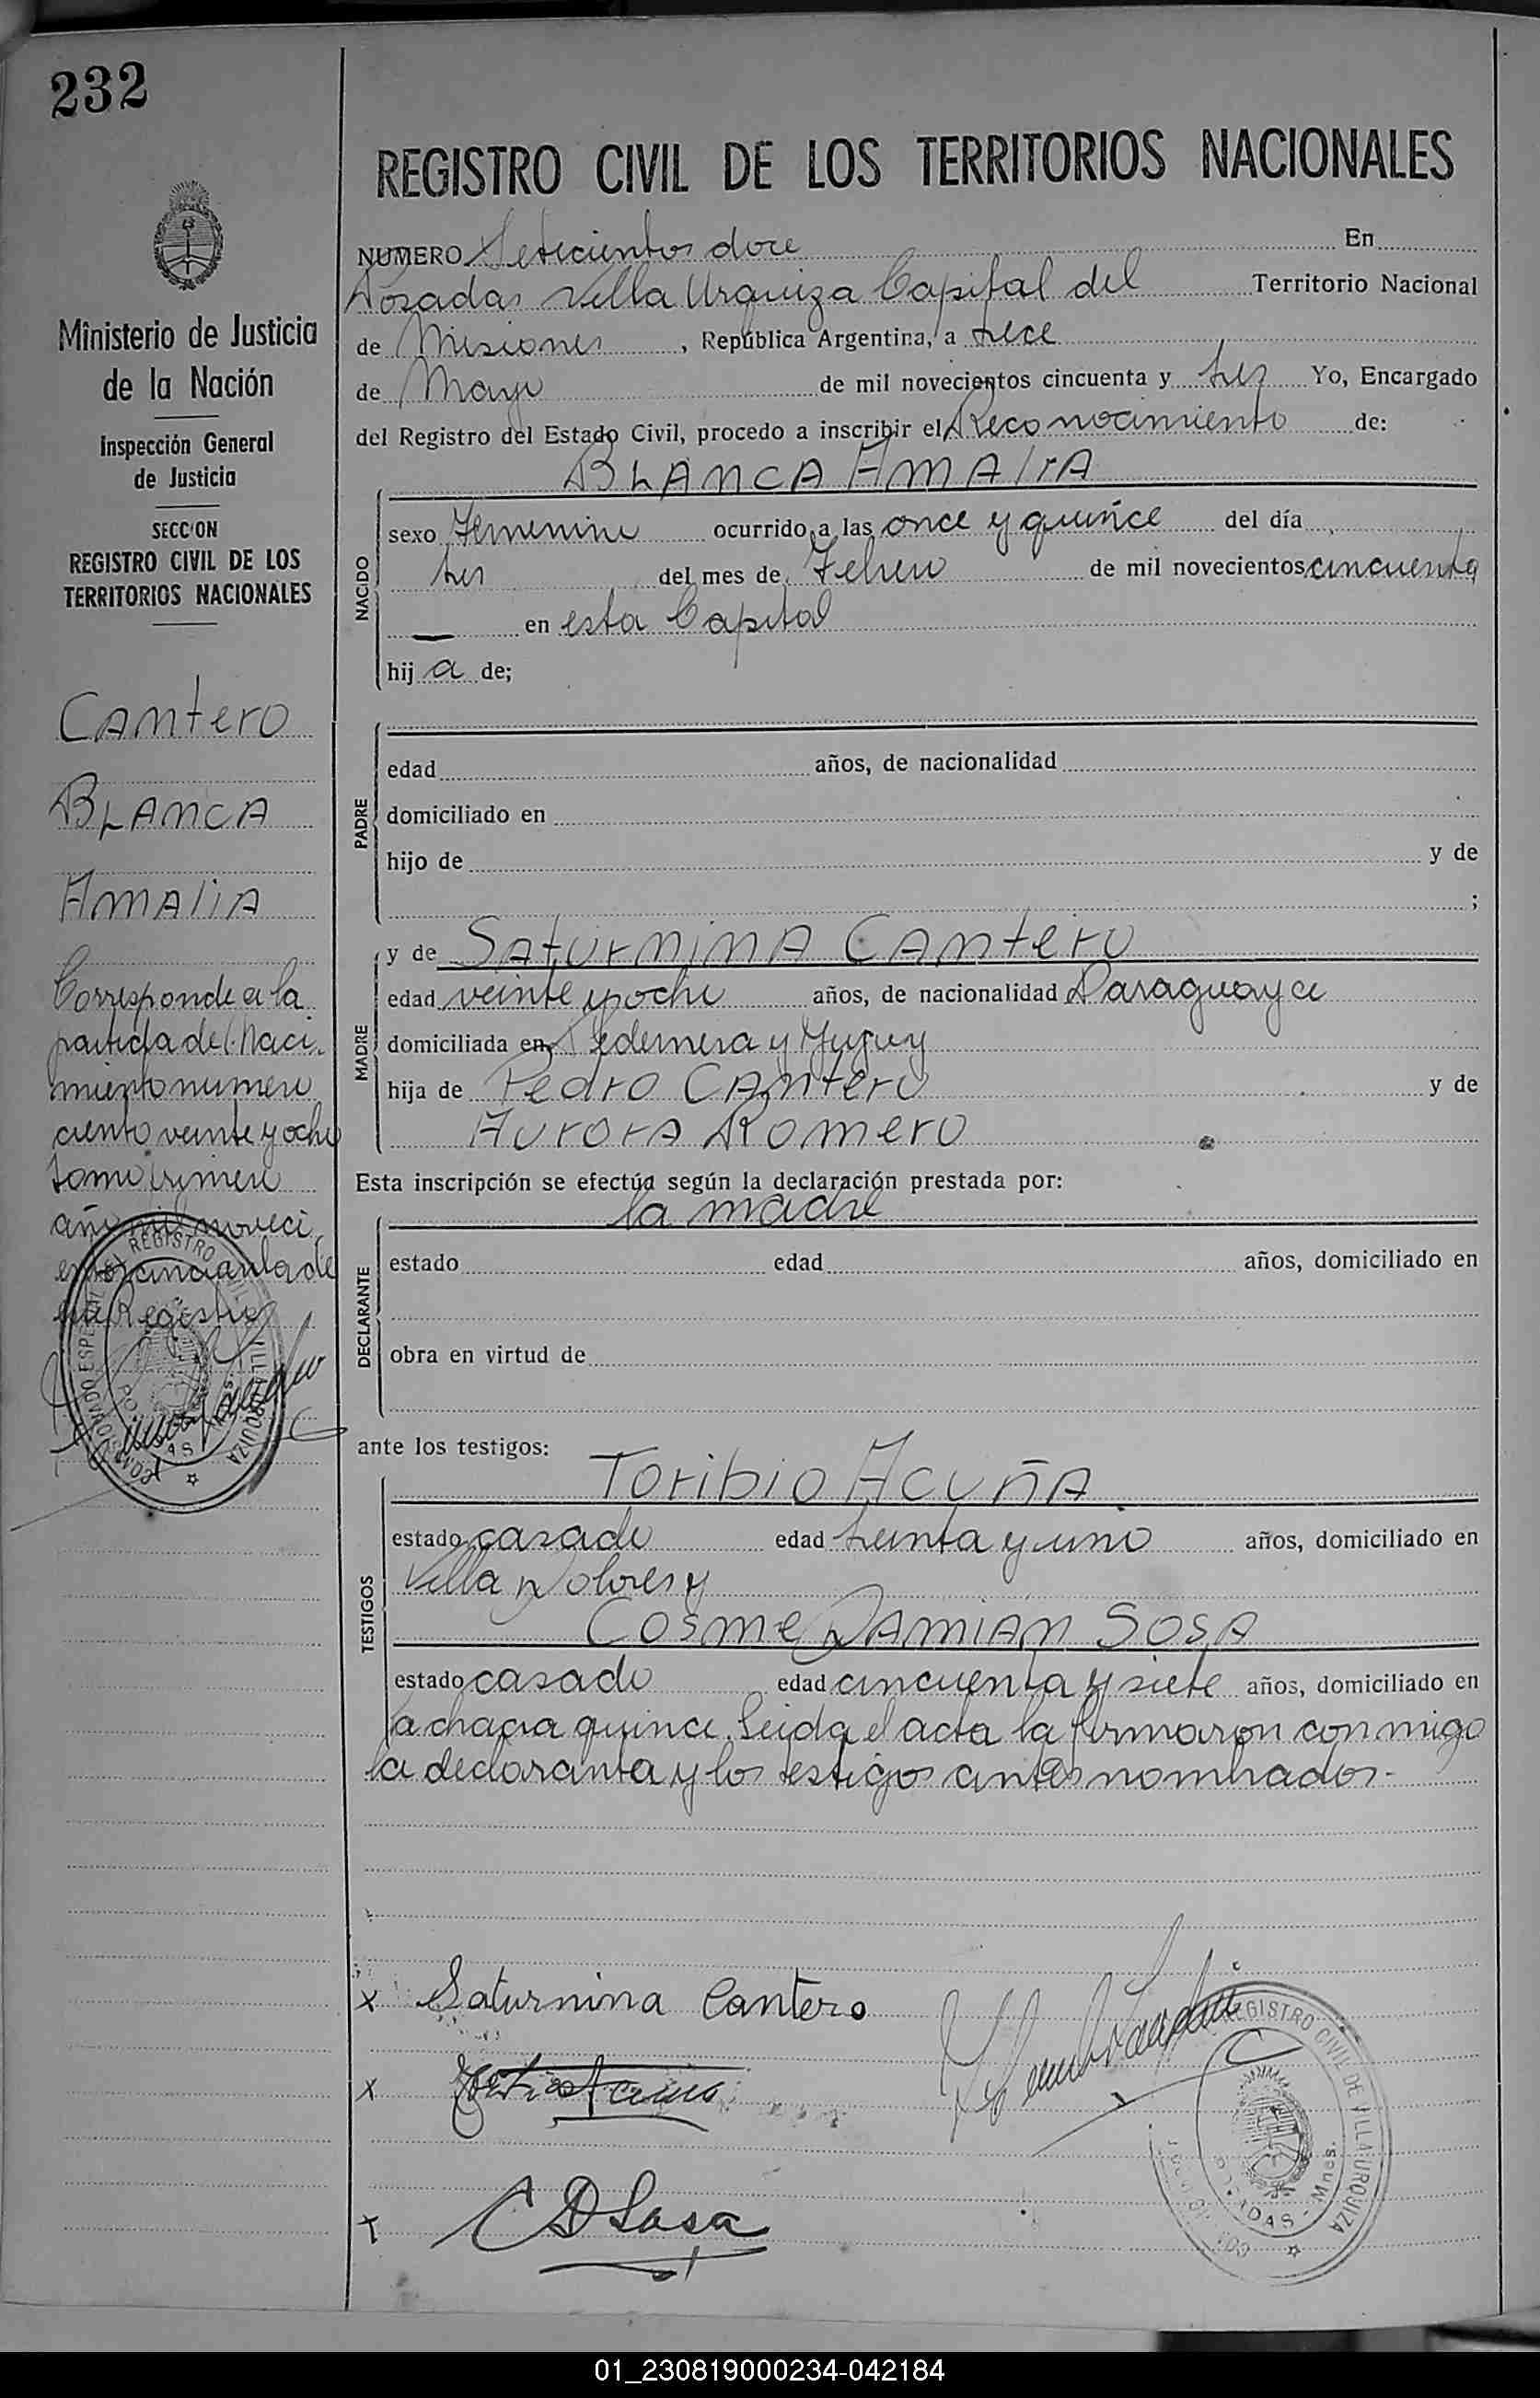 232
Ministerio de Justicia
de la Nación
Inspección General
de Justicia
SECCION
REGISTRO CIVIL DE LOS
TERRITORIOS NACIONALES
Cantero
BLANCA
AMALIA
Corresponde a la
partida de Naci-
miento numero
ciento veinte y ocho
tomo primero
año mil noveci
entos cincuenta de
este Registro
REGISTRO CIVIL DE VILLA URQUIZA
REGISTRO CIVIL DE LOS TERRITORIOS NACIONALES
NUMERO Setecientos doce En
Posadas Villa Urquiza Capital del Territorio Nacional
de Misiones, República Argentina, a trece
de Mayo de mil novecientos cincuenta y tres Yo, Encargado
del Registro del Estado Civil, procedo a inscribir el Reconocimiento de:
BLANCA AMALIA
NACIDO
sexo Femenino ocurrido a las once y quince del día
tres del mes de Febrero de mil novecientos cincuenta
— en esta Capital
hij a de;
PADRE
edad años, de nacionalidad
domiciliado en
hijo de y de
;
MADRE
y de SATURNINA CANTERO
edad veinte y ocho años, de nacionalidad Paraguaya
domiciliada en Pedernera y Jujuy
hija de Pedro CANTERO y de
AURORA ROMERO
Esta inscripción se efectúa según la declaración prestada por:
la madre
DECLARANTE
estado edad años, domiciliado en
obra en virtud de
ante los testigos:
TESTIGOS
Toribio ACUÑA
estado casado edad treinta y uno años, domiciliado en
Villa Dolores y
COSME DAMIAN SOSA
estado casado edad cincuenta y siete años, domiciliado en
la chacra quince. Leida el acta la firmaron conmigo
la declaranta y los testigos antes nombrados.-
x Saturnina Cantero
x
x C D Sosa
REGISTRO CIVIL DE VILLA URQUIZA
POSADAS - Mnes.
01_230819000234-042184